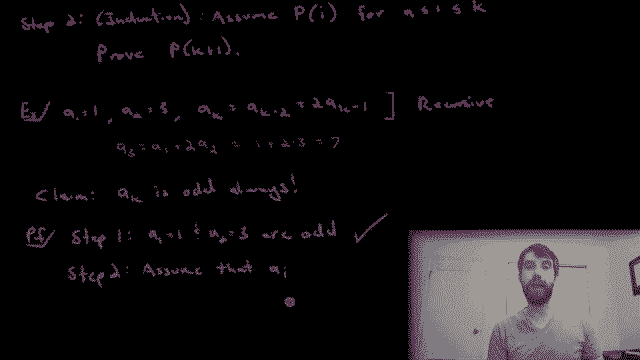 Step 2: (Induction): Assume P(i) for a ≤ i ≤ k
Prove P(k+1).
Ex/ a₁=1, a₂=3, aₖ = aₖ₋₂ + 2aₖ₋₁ ] Recursive
a₃ = a₁ + 2a₂ = 1 + 2·3 = 7
Claim: aₖ is odd always!
Pf/ Step 1: a₁=1 & a₂=3 are odd ✓
Step 2: Assume that aᵢ